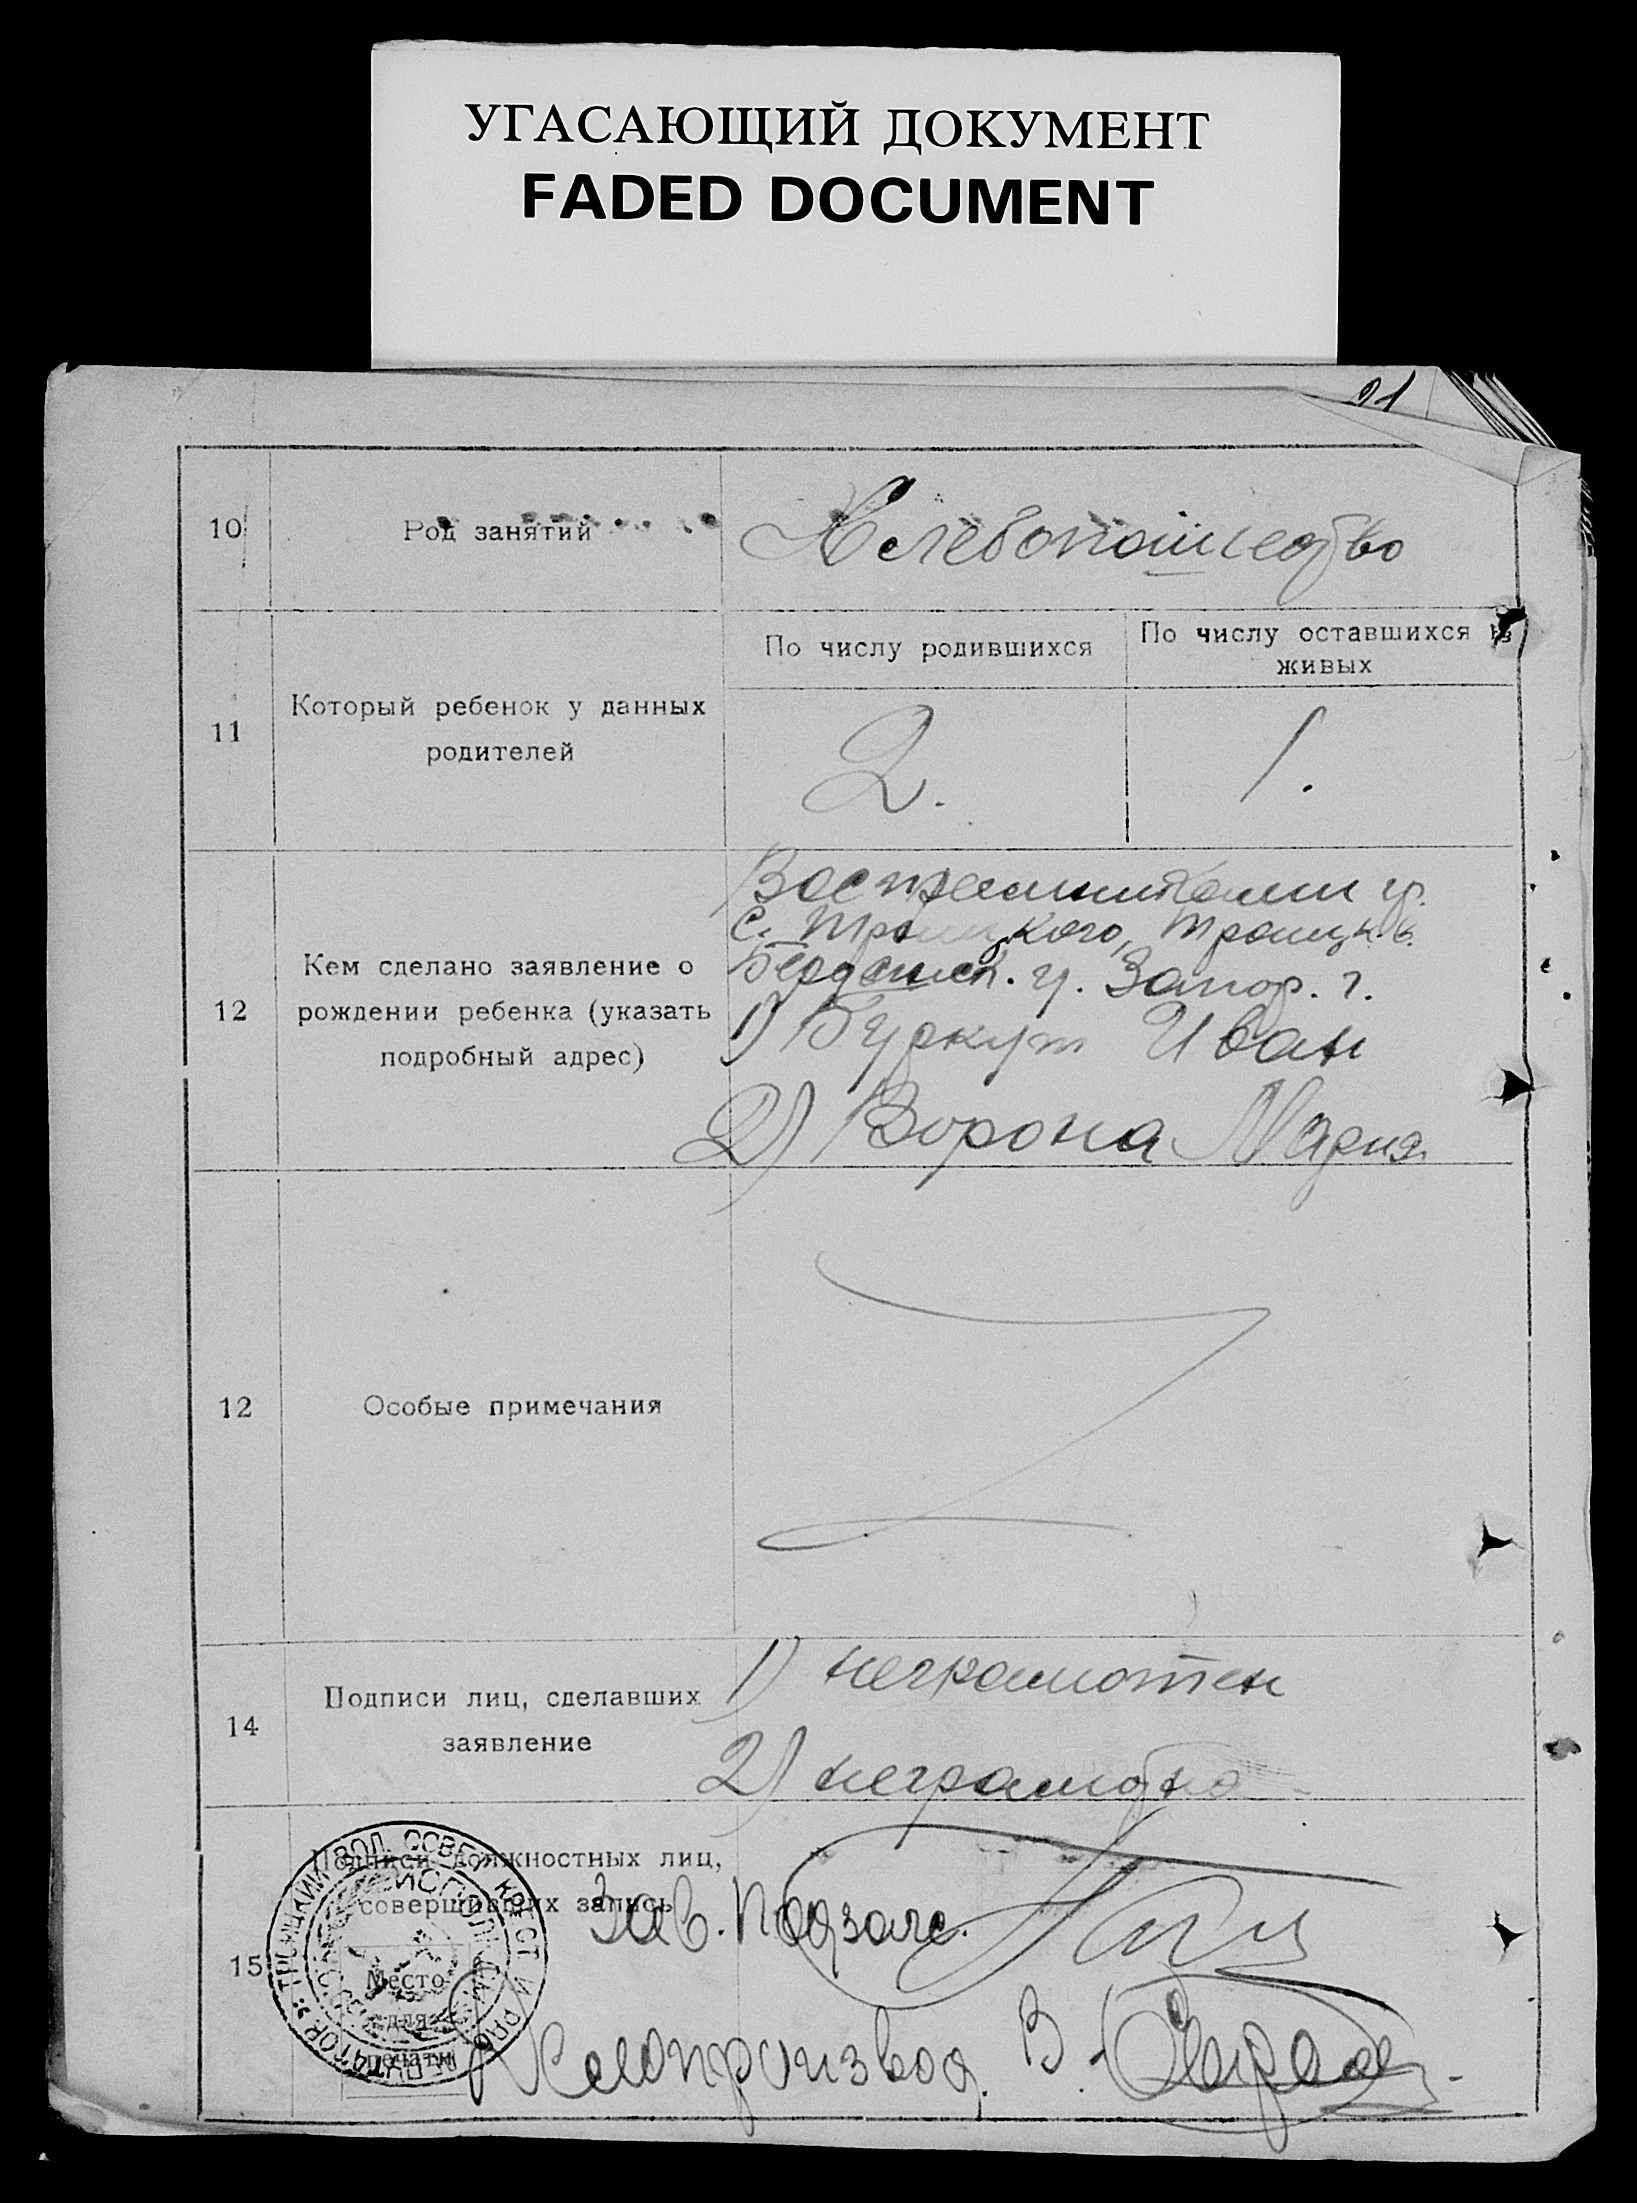 УГАСАЮЩИЙ ДОКУМЕНТ
FADED DOCUMENT
21
10
Род занятий
Хлебопашество
11
Который ребенок у данных
родителей
По числу родившихся
По числу оставшихся в
живых
2.
1.
12
Кем сделано заявление о
рождении ребенка (указать
подробный адрес)
Восприемниками гр.
с. Троицкого, Троицк. в.
Бердянск. у. Запор. г.
1) Буркут Иван
2) Ворона Мария
12
Особые примечания
14
Подписи лиц, сделавших
заявление
1) неграмотен
2) неграмотна
15
Подписи должностных лиц,
совершивших запись
Место
для
печати
Зав. Подзагс.
Делопроизвод. В.